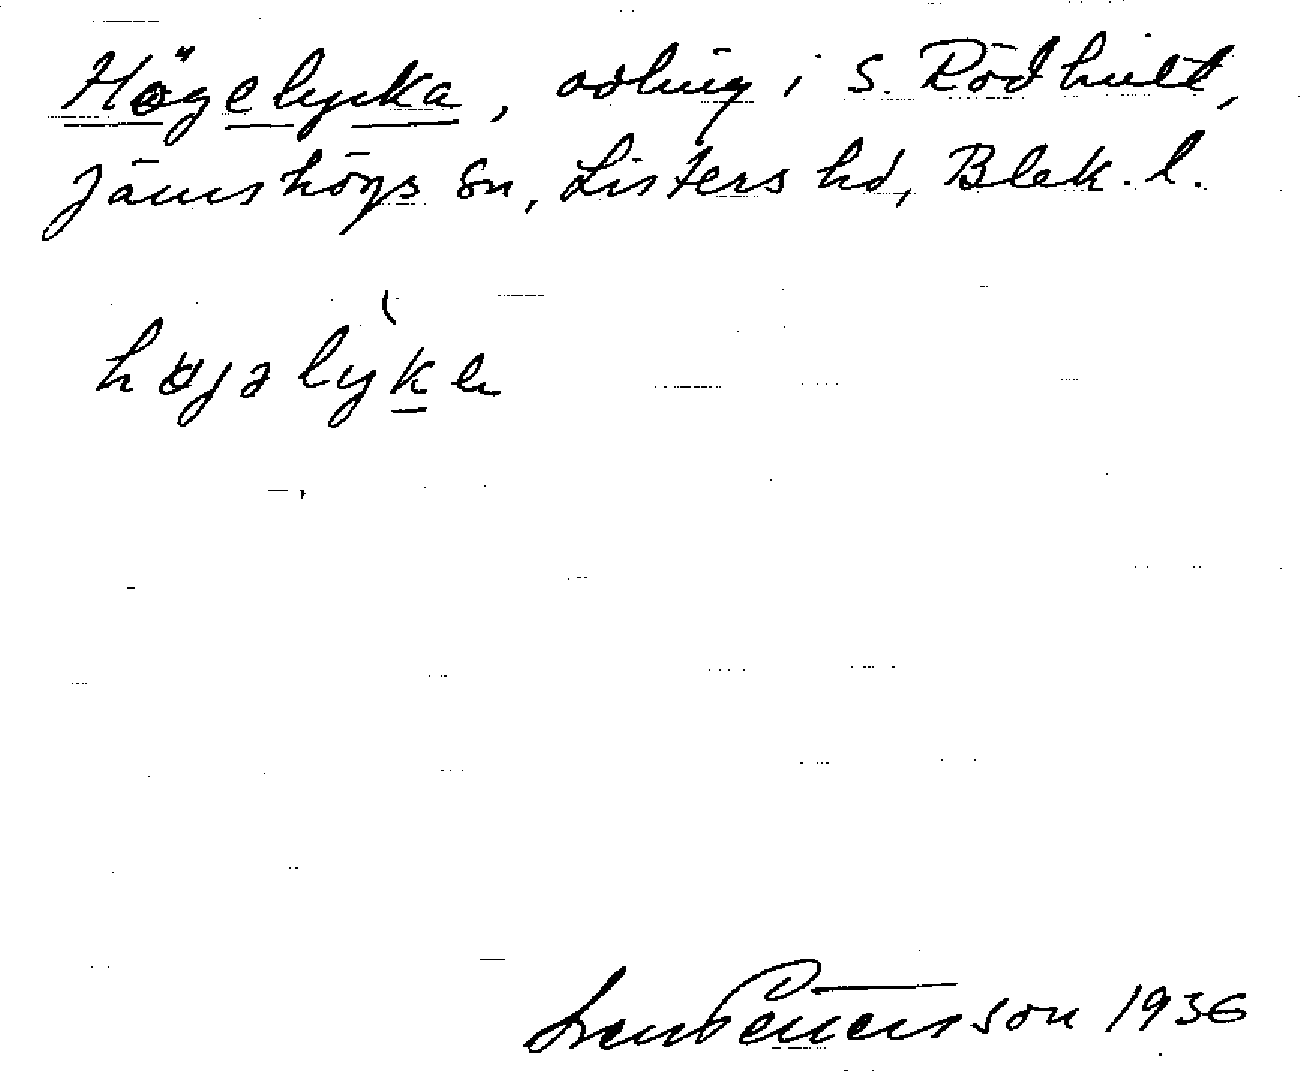 Högelycka, odling i S. Rödhult,
Jämshögs sn, Listers hd, Blek. l.
højəlỳkа
Sven Pettersson 1936